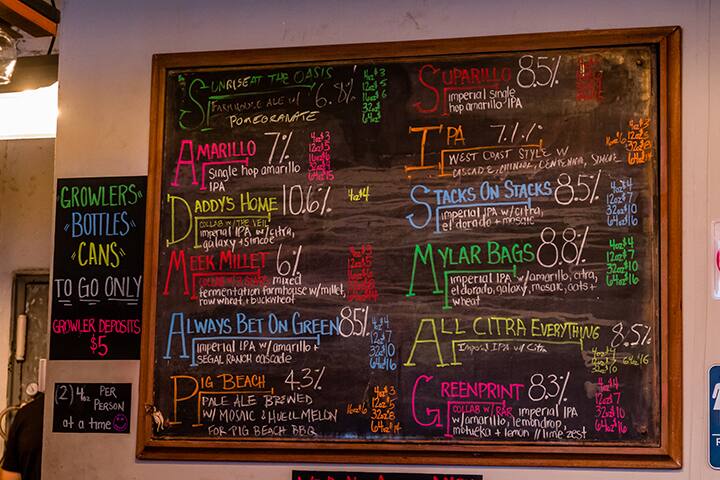 GROWLERS
"BOTTLES"
CANS
TO GO ONLY
GROWLER DEPOSITS
$5
2) 4oz PER
PERSON
at a time
SUNRISE AT THE OASIS
FARMHOUSE ALE w/
POMEGRANATE
4oz $3
12oz $5
16oz $6
32oz
64oz
AMARILLO 7%
Single hop amarillo
IPA
4oz $3
12oz $5
16oz $6
64oz $15
DADDY'S HOME 10.6%
COLLAB W/ THE VEIL
imperial IPA w/citra,
galaxy + simcoe
4oz $4
MEEK MILLET 6%
mixed
fermentation farmhouse w/millet,
raw wheat, + buckwheat
ALWAYS BET ON GREEN 8.5%
imperial IPA w/amarillo +
SEGAL RANCH cascade
4oz $4
12oz $7
32oz $10
64oz $16
PIG BEACH 4.3%
PALE ALE BREWED
W/ MOSAIC & HUELL MELON
FOR PIG BEACH BBQ
4oz $3
12oz $5
32oz $8
64oz $14
SUPARILLO 8.5%
imperial single
hop amarillo IPA
IPA 7.1%
WEST COAST STYLE W/
CASCADE, CHINOOK, CENTENNIAL, SIMCOE
STACKS ON STACKS 8.5%
imperial IPA w/citra,
el dorado + mosaic
4oz $4
12oz $7
32oz $10
64oz $16
MYLAR BAGS 8.8%
imperial IPA w/amarillo, citra,
el dorado, galaxy, mosaic, oats +
wheat
4oz $4
12oz $7
32oz $10
64oz $16
ALL CITRA EVERYTHING 8.5%
Imperial IPA w/ Citra
4oz $4
12oz $7
32oz $10
64oz $16
GREENPRINT 8.3%
COLLAB W/ BAR
imperial IPA
w/amarillo, lemondrop,
motueka + lemon // lime zest
4oz $4
12oz $7
32oz $10
64oz $16